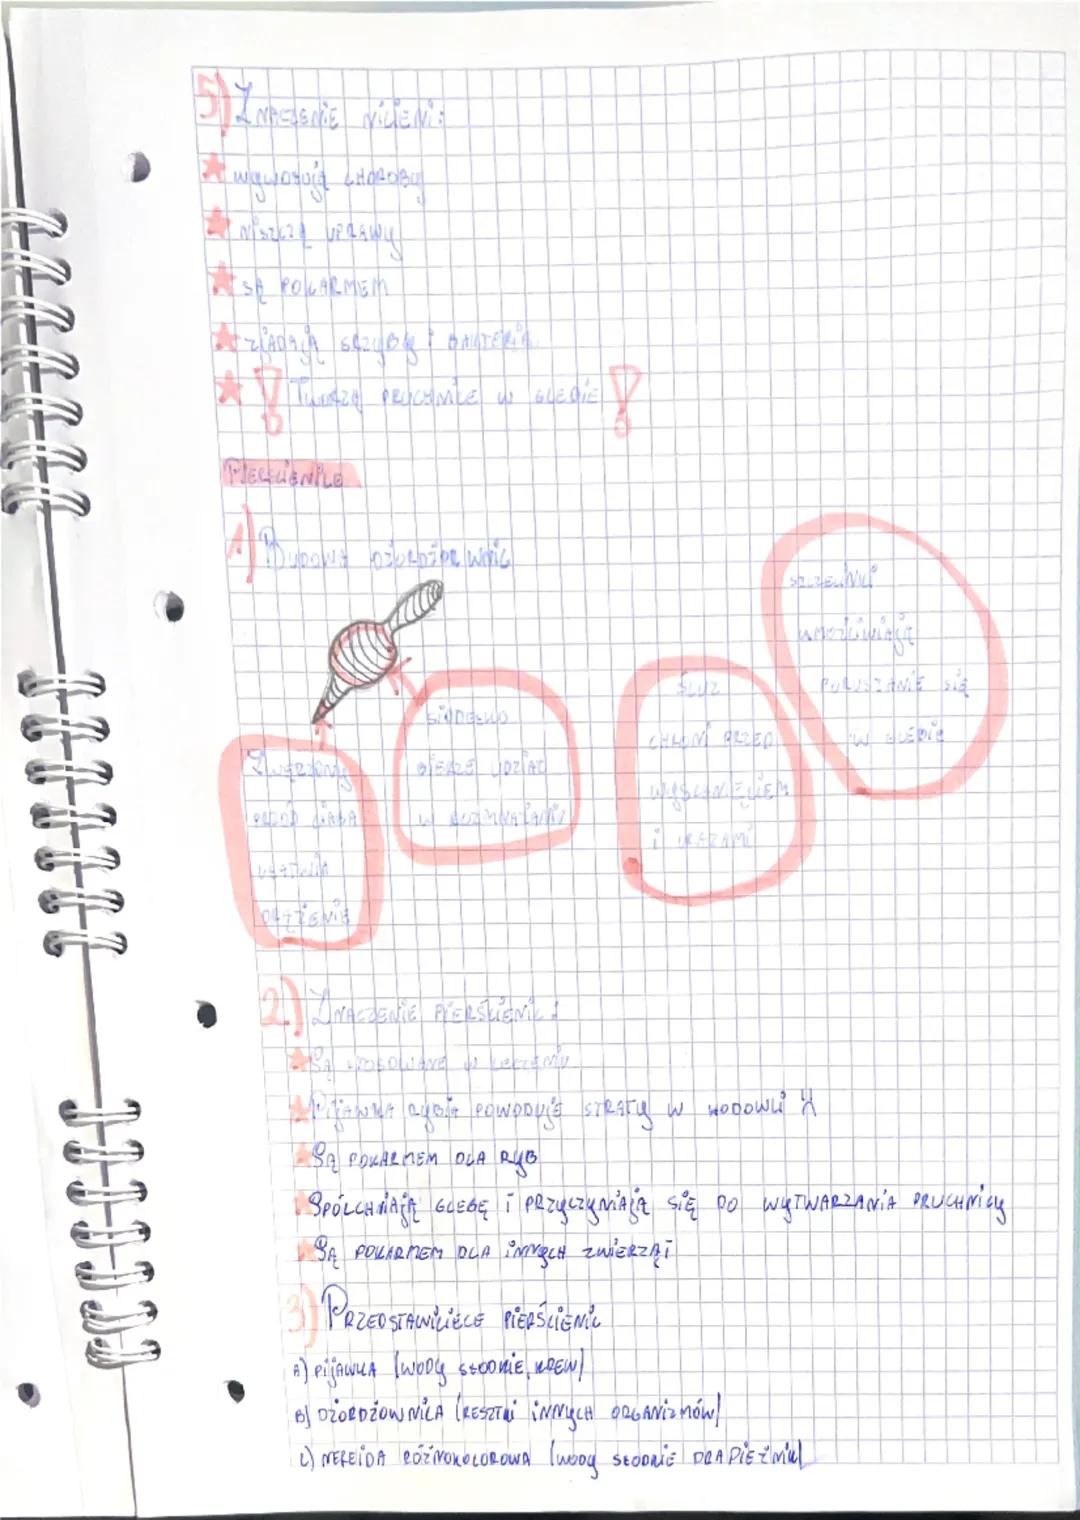 5) ZNACZENIE NICIENI:
WYWOŁUJĄ CHOROBY
NISZCZĄ UPRAWY
SĄ POKARMEM
ZJADAJĄ GRZYBY I BAKTERIE
TWORZĄ PRUCHNICE W GLEBIE
PIERŚCIENICE
1) BUDOWA
ZWĘRZONY
PRZÓD CIAŁA
UŁATWIA
DRĄŻENIE
SIODEŁKO
BIERZE UDZIAŁ
W ROZMNAŻANIU
ŚLUZ
CHRONI PRZED
WYSCHNIĘCIEM
I URAZAMI
SZCZECINKI
UMOŻLIWIAJĄ
PORUSZANIE SIĘ
W GLEBIE
2.) ZNACZENIE PIERŚCIENIC:
SĄ STOSOWANE W LECZENIU
PIJAWKA RYBIA POWODUJE STRATY W HODOWLI
SĄ POKARMEM DLA RYB
SPÓLCHNIAJĄ GLEBĘ I PRZYCZYNIAJĄ SIĘ DO WYTWARZANIA PRUCHNICY
SĄ POKARMEM DLA INNYCH ZWIERZĄT
3) PRZEDSTAWICIELE PIERŚCIENIC
A) PIJAWKA (WODY SŁODKIE, KREW)
B) DŻORDŻOWNICA (RESZTKI INNYCH ORGANIZMÓW)
C) NEREIDA RÓŻNOKOLOROWA (WODY SŁODKIE DRAPIEŻNIK)